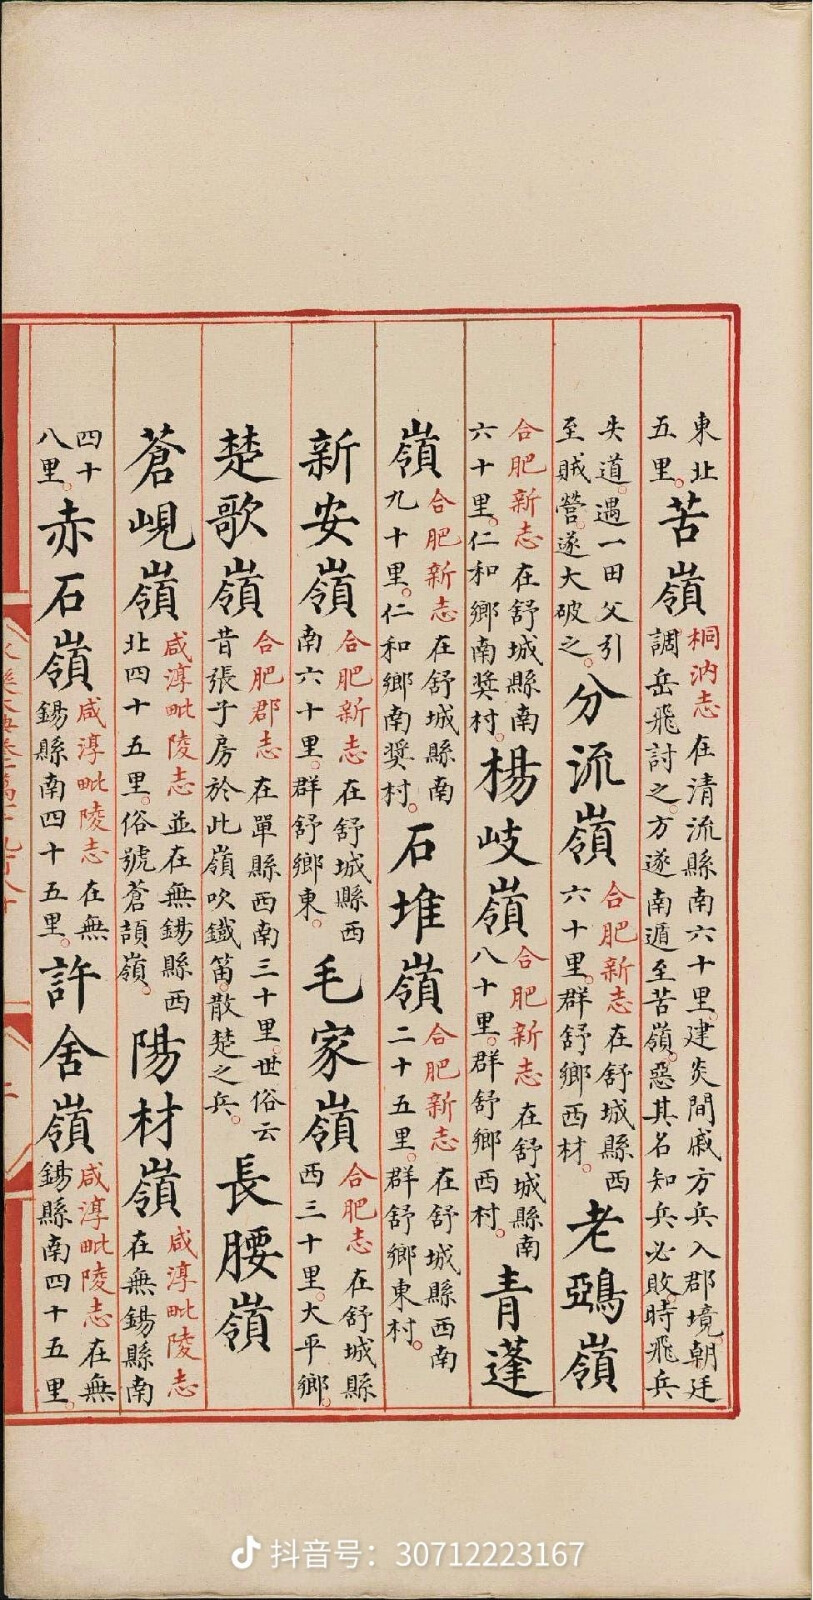 東北五里。苦嶺桐汭志在清流縣南六十里。建炎間戚方兵入郡境。朝廷調岳飛討之。方遂南遁至苦嶺。惡其名知兵必敗。時飛兵
失道。遇一田父引至賊營。遂大破之。分流嶺合肥新志在舒城縣西六十里。群舒鄉西材。老鵶嶺
合肥新志在舒城縣南六十里。仁和鄉南奬村。楊岐嶺合肥新志在舒城縣南八十里。群舒鄉西村。青蓬
嶺合肥新志在舒城縣南九十里。仁和鄉南奬村。石堆嶺合肥新志在舒城縣西南二十五里。群舒鄉東村。
新安嶺合肥新志在舒城縣西南六十里。群舒鄉東。毛家嶺合肥志在舒城縣西三十里。大平鄉。
楚歌嶺合肥郡志在單縣西南三十里。世俗云昔張子房於此嶺吹鐵笛。散楚之兵。長腰嶺
蒼峴嶺咸淳毗陵志並在無錫縣西北四十五里。俗號蒼頡嶺。陽材嶺咸淳毗陵志在無錫縣南
四十八里。赤石嶺咸淳毗陵志在無錫縣南四十五里。許舍嶺咸淳毗陵志在無錫縣南四十五里。
抖音号：30712223167